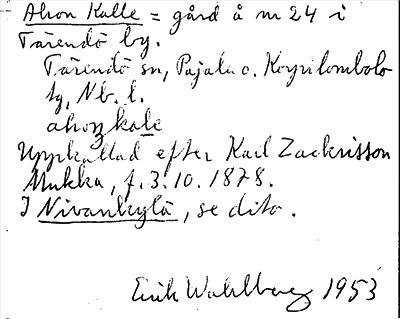 Ahon Kalle = gård å nr 24 i
Tärendö by.
Tärendö sn, Pajala o. Korpilombolo
tg, Nb. l.
Uppkallad efter Karl Zackrisson
Mukka, f. 3.10.1878.
I Nivankylä, se dito.
Erik Wahlberg 1953